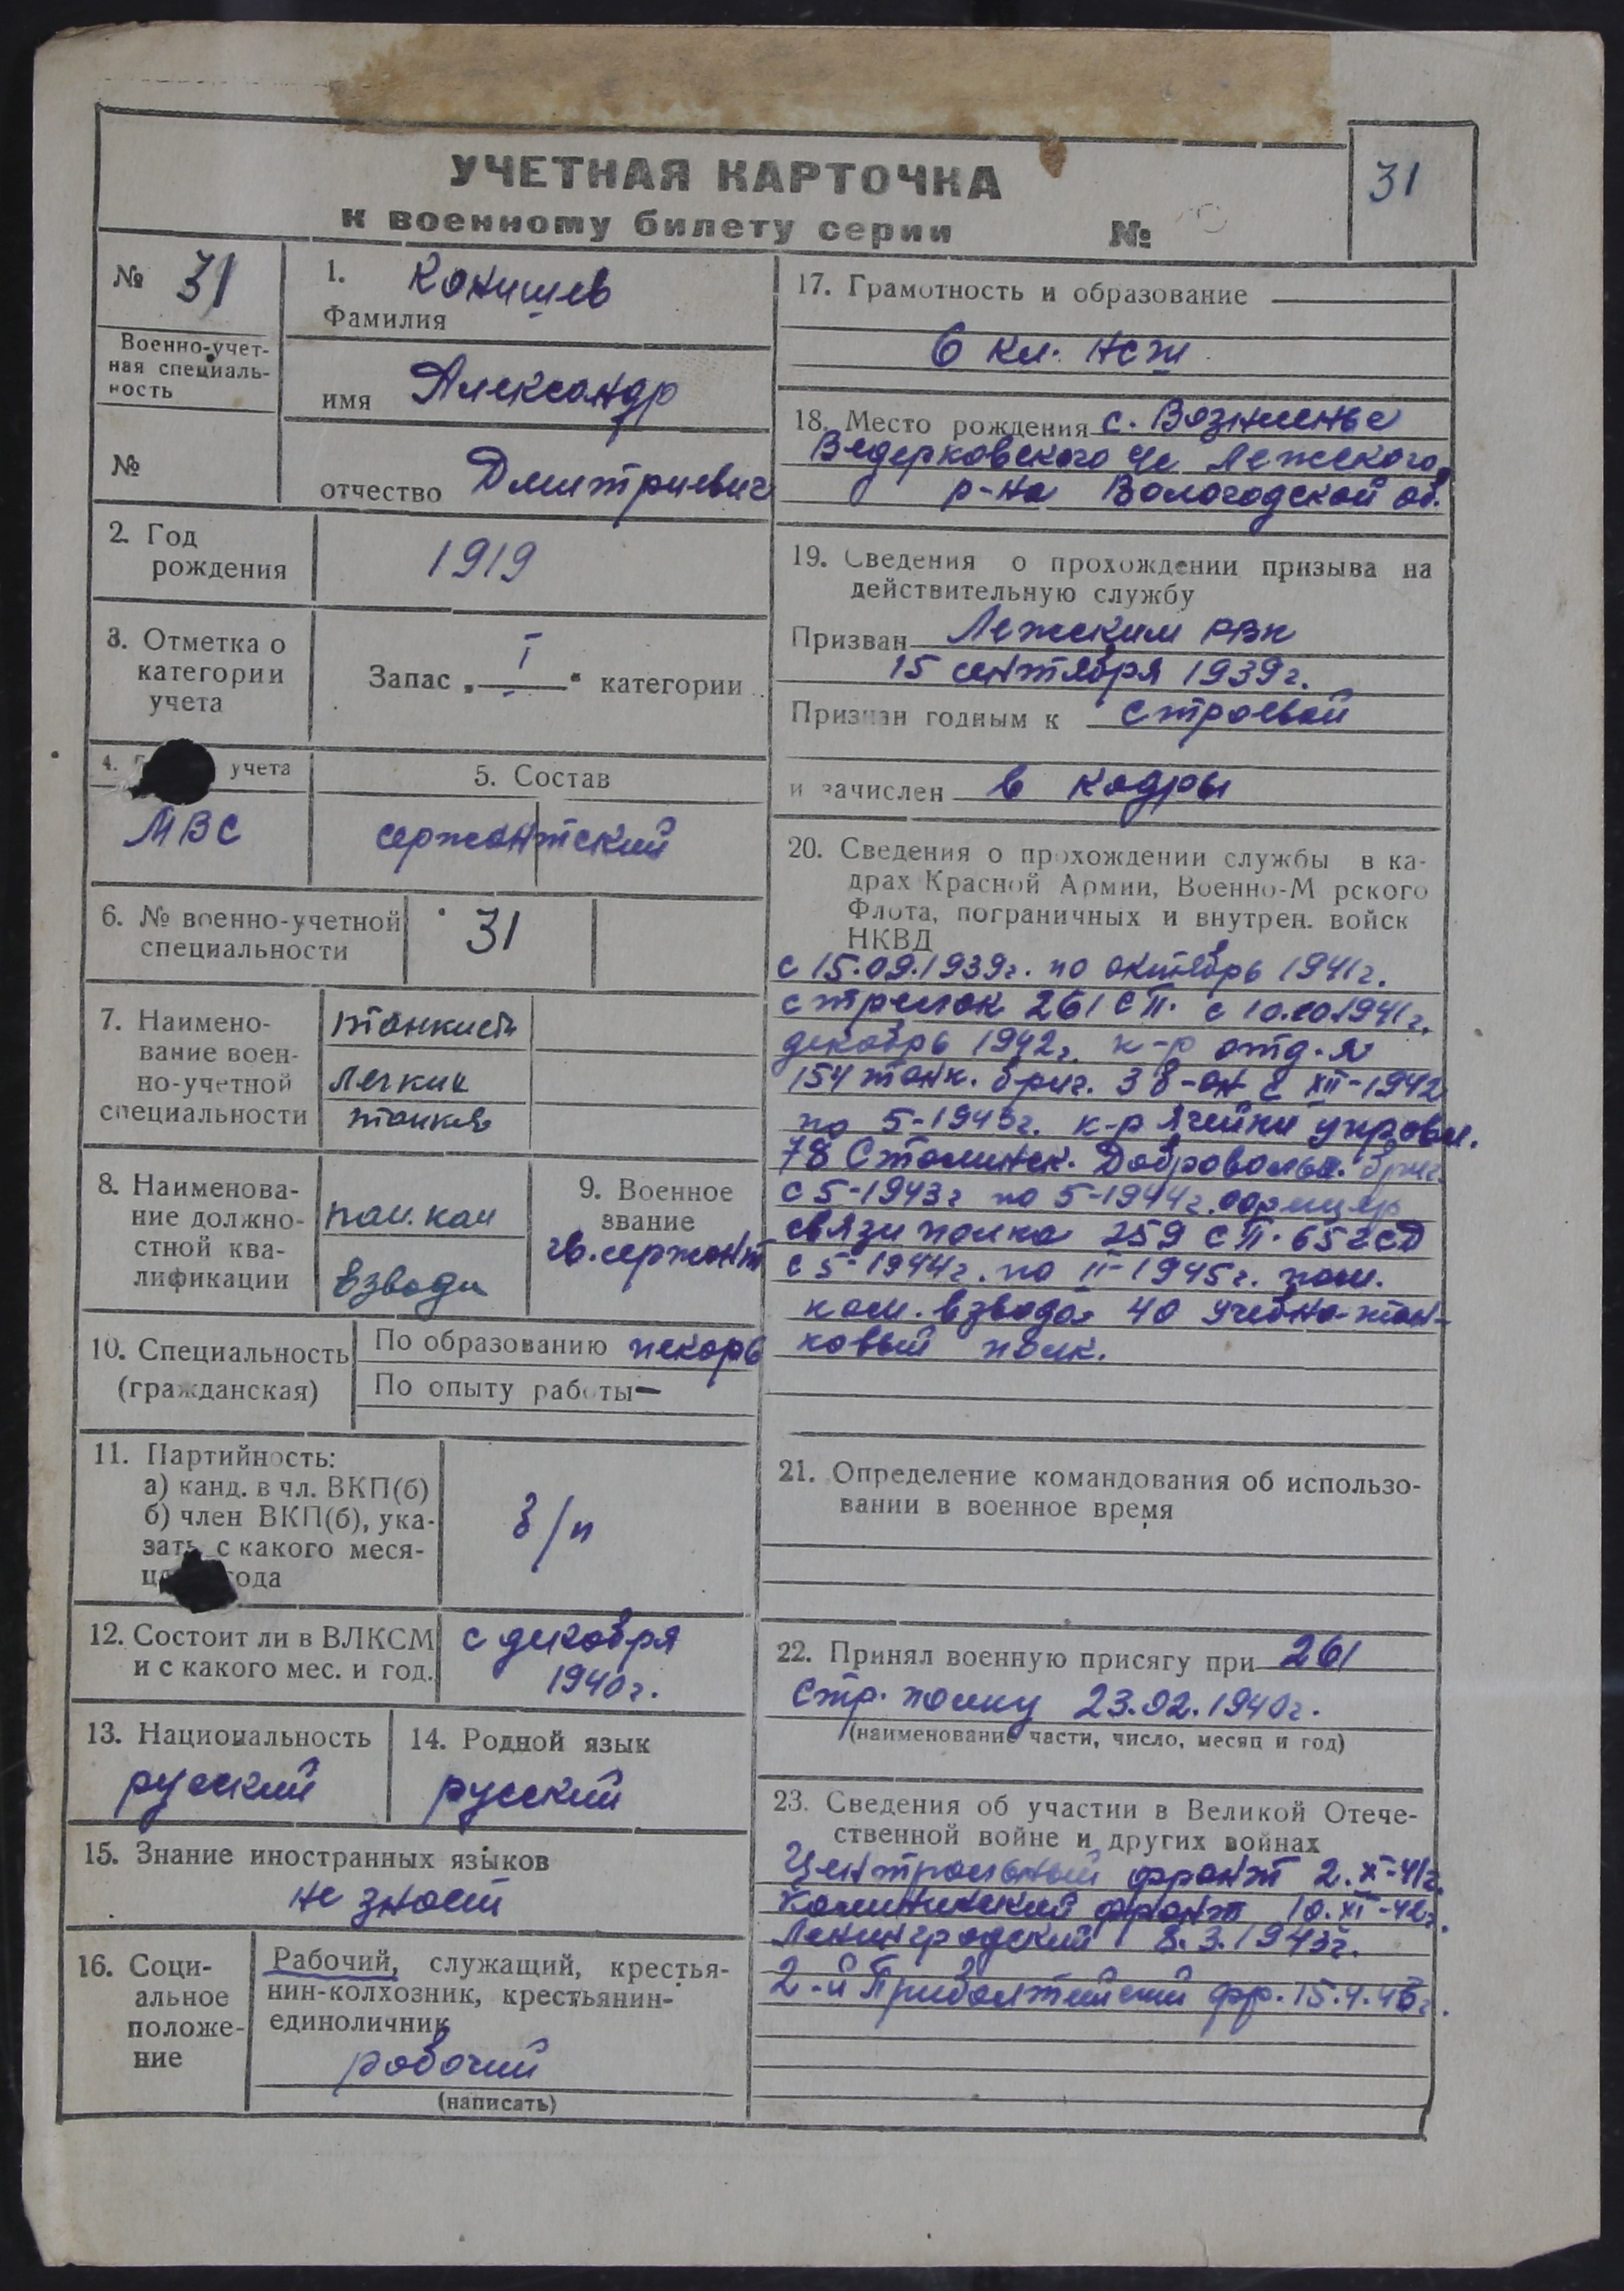 УЧЕТНАЯ КАРТОЧКА
31
к военному билету серии №
№ 31
Военно-учет-
ная специаль-
ность
№
1. Конишев
Фамилия
имя Александр
отчество Дмитриевич
2. Год
рождения
1919
3. Отметка о
категории
учета
Запас „ I “ категории
4. учета
МВС
5. Состав
сержантский
6. № военно-учетной
специальности
31
7. Наимено-
вание воен-
но-учетной
специальности
танкист
легких
танков
8. Наименова-
ние должно-
стной ква-
лификации
пом. ком
взвода
9. Военное
звание
гв. сержант
10. Специальность
(гражданская)
По образованию пекарь
По опыту работы —
11. Партийность:
а) канд. в чл. ВКП(б)
б) член ВКП(б), ука-
зать с какого меся-
ца года
б/п
12. Состоит ли в ВЛКСМ
и с какого мес. и год.
с декабря
1940 г.
13. Национальность
русский
14. Родной язык
русский
15. Знание иностранных языков
не знает
16. Соци-
альное
положе-
ние
Рабочий, служащий, крестья-
нин-колхозник, крестьянин-
единоличник
рабочий
(написать)
17. Грамотность и образование
6 кл. НСШ
18. Место рождения с.
Ведерковского с/с Лежского
р-на Вологодской об.
19. Сведения о прохождении призыва на
действительную службу
Призван Лежским РВК
15 сентября 1939 г.
Признан годным к строевой
и зачислен в кадры
20. Сведения о прохождении службы в ка-
драх Красной Армии, Военно-М рского
Флота, пограничных и внутрен. войск
НКВД
с 15.09.1939 г. по октябрь 1941 г.
стрелок 261 СП. с 10.10.1941 г.
декабрь 1942 г. к-р отд-я
154 танк. бриг. с XII-1942
по 5-1943 г. к-р ячейки управл.
78 Сталинск. Добровольч. бриг.
с 5-1943 г по 5-1944 г.
связи полка 259 СП. 65 гСД
с 5-1944 г. по II-1945 г. пом.
ком. взвода 40 учебно-тан-
ковый полк.
21. Определение командования об использо-
вании в военное время
22. Принял военную присягу при 261
стр. полку 23.02.1940 г.
(наименование части, число, месяц и год)
23. Сведения об участии в Великой Отече-
ственной войне и других войнах
Центральный фронт 2.X-41 г.
Калининский фронт 10.XI-42 г.
Ленинградский 8.3.1943 г.
2-й Прибалтийский фр. 15.4.